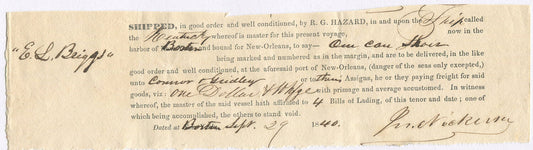 SHIPPED, in good order and well conditioned, by R. G. HAZARD, in and upon the Ship called
the Kentucky whereof is master for this present voyage, now in the
harbor of Boston and bound for New-Orleans, to say— One can Shoes
"E. L. Briggs"
being marked and numbered as in the margin, and are to be delivered, in the like
good order and well conditioned, at the aforesaid port of New-Orleans, (danger of the seas only excepted,)
unto Connor Gridley or their Assigns, he or they paying freight for said
goods, viz: one Dollar & Whfge with primage and average accustomed. In witness
whereof, the master of the said vessel hath affirmed to 4 Bills of Lading, of this tenor and date; one of
which being accomplished, the others to stand void.
Dated at Boston Sept. 29 1840. Jno. Nickerson